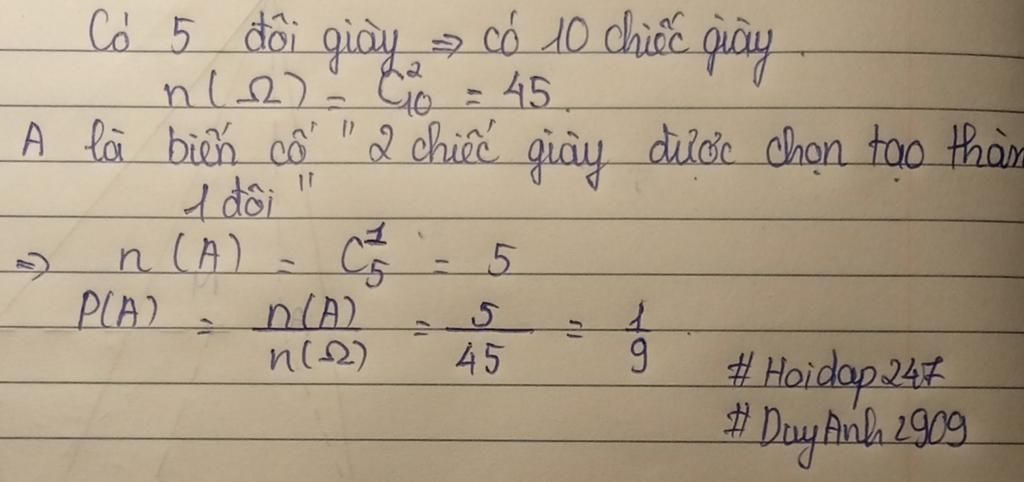 Có 5 đôi giày => có 10 chiếc giày.
n(Ω) = C²₁₀ = 45.
A là biến cố " 2 chiếc giày được chọn tạo thàn
1 đôi "
=> n(A) = C¹₅ = 5
P(A) = n(A)/n(Ω) = 5/45 = 1/9.
# Hoidap247
# DuyAnh2909